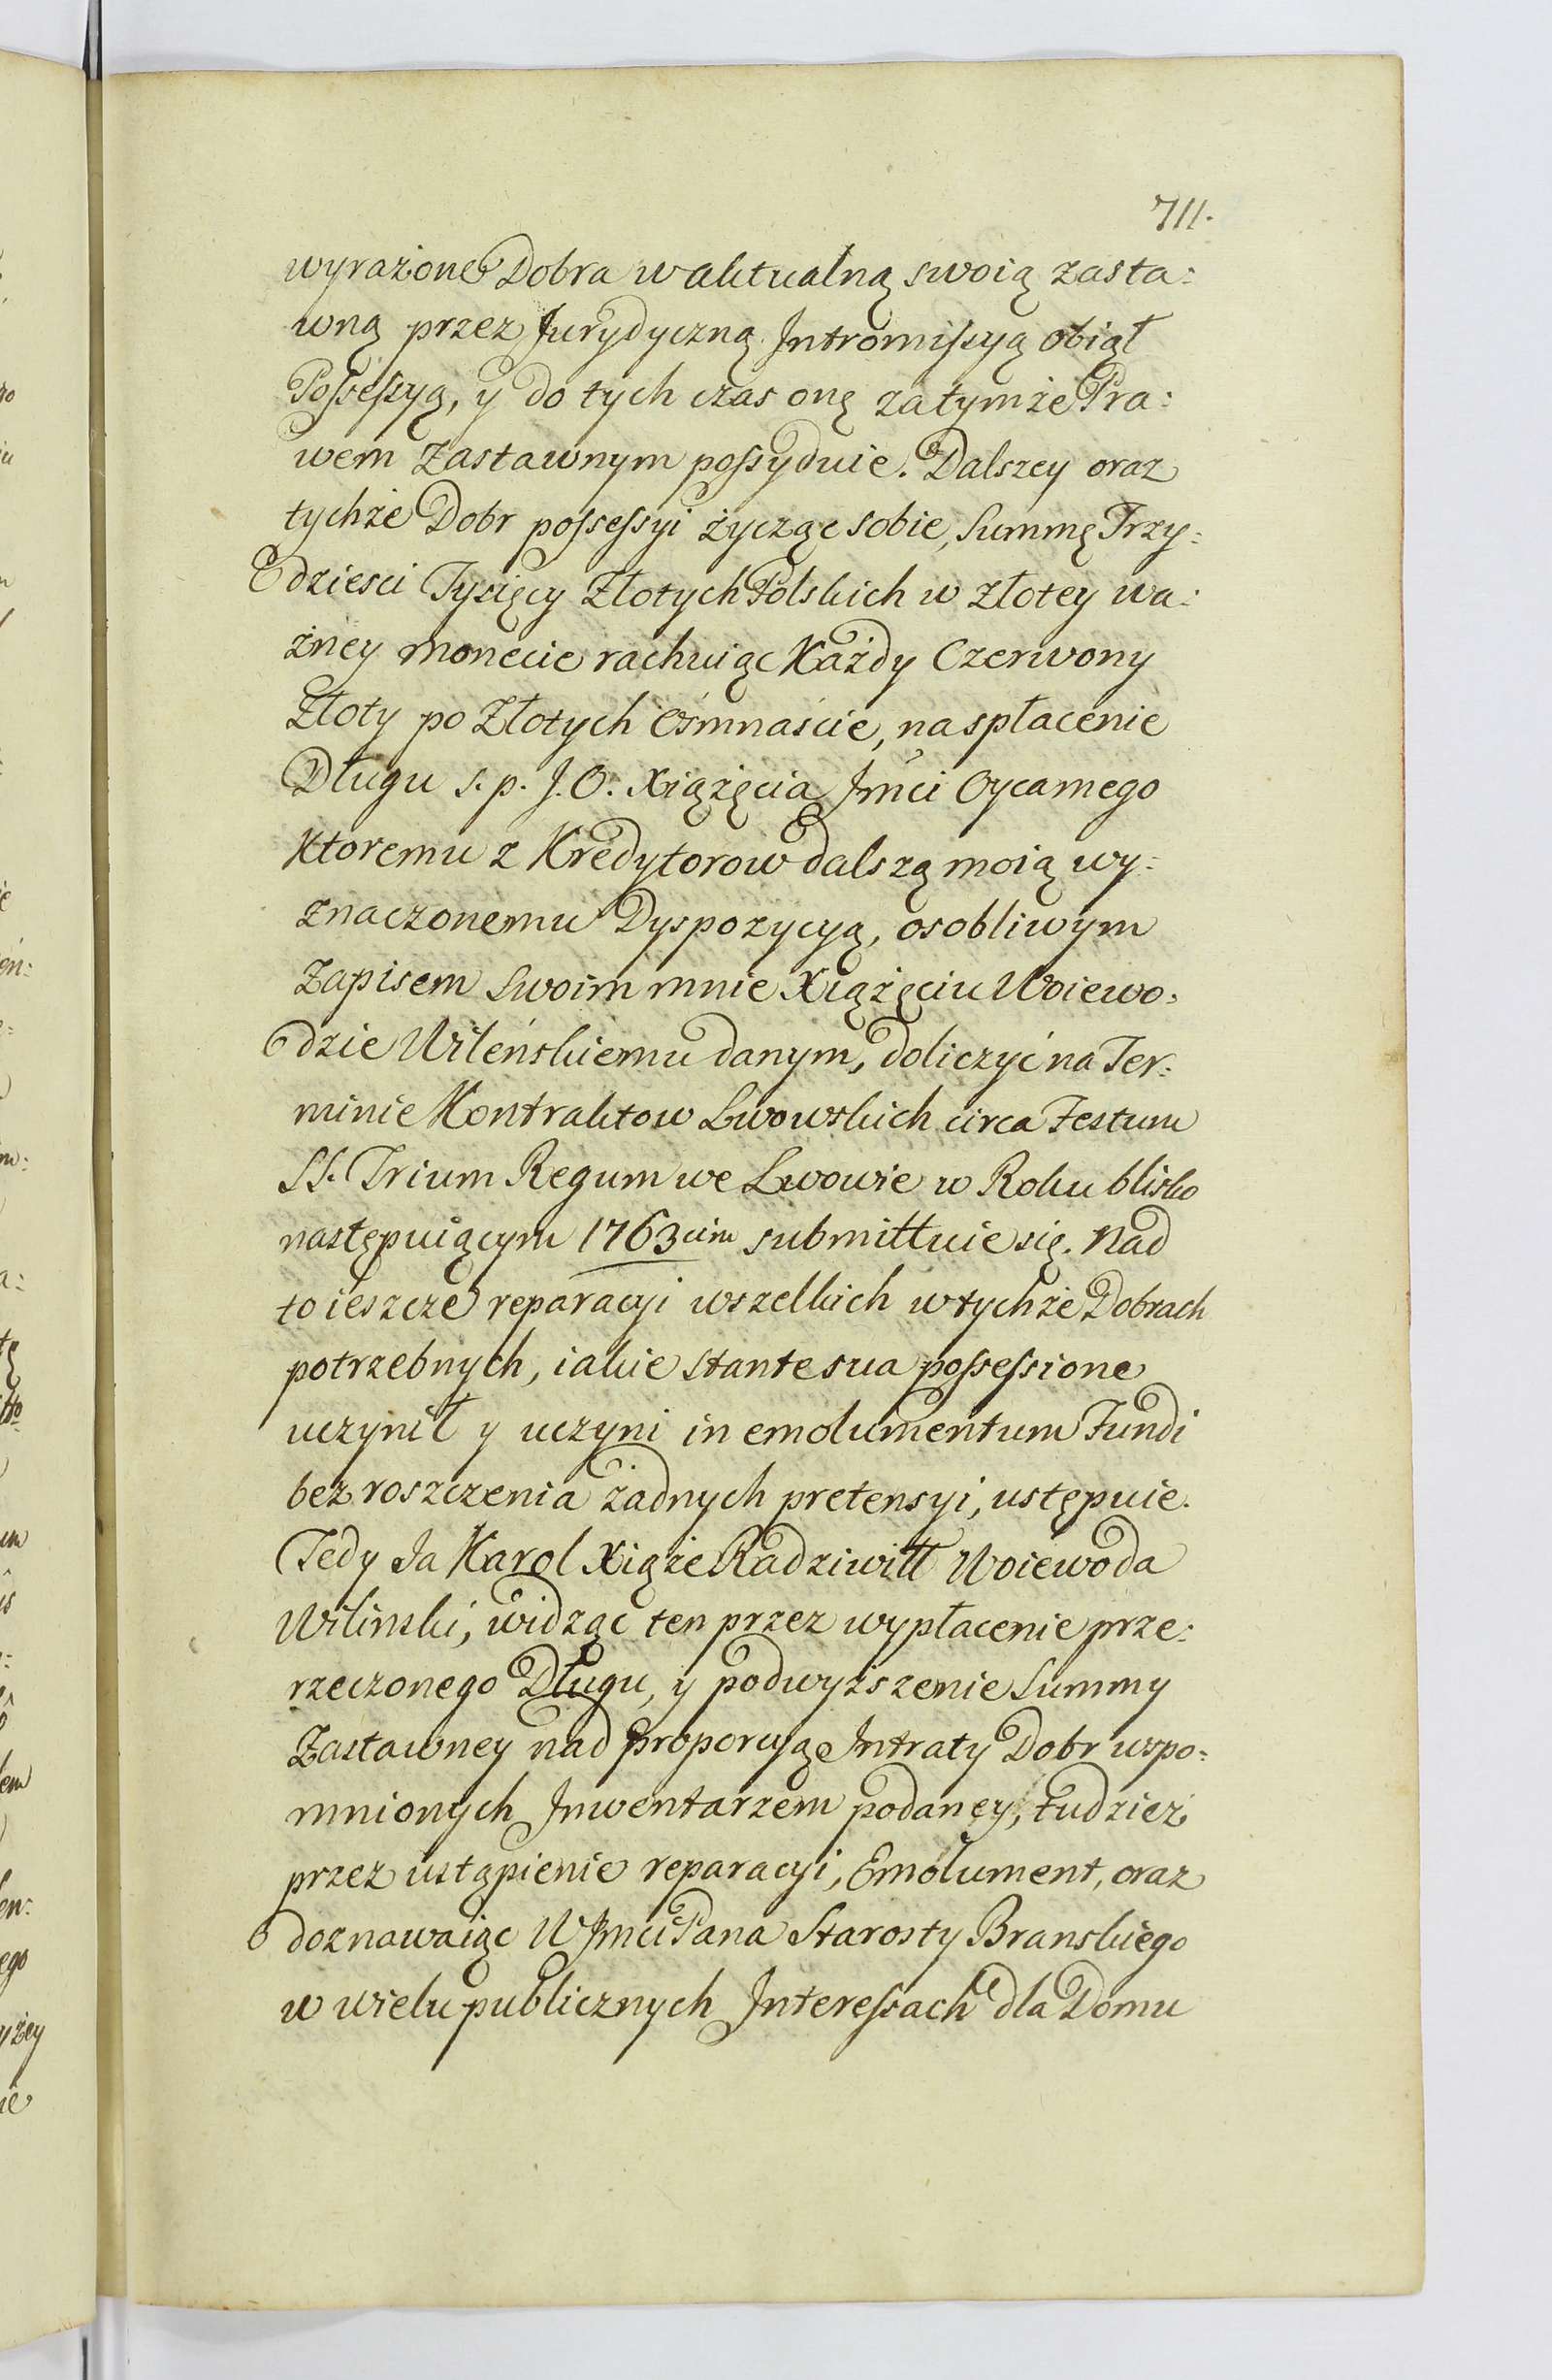 711.
wyrażone Dobra w aktualną swoią zasta:
wną przez Jurydyczną Intromissyą obiął
Possessyą, y do tych czas onę za tymże Pra:
wem Zastawnym possyduie. Dalszey oraz
tychże Dobr possessyi życząc sobie, Summę Trzy:
dziesci Tysięcy Złotych Polskich w złotey wa:
żney monecie rachuiąc Każdy Czerwony
Złoty po Złotych ośmnaście, na spłacenie
Długu s. p. J. O. Xiążęcia Jmci Oyca mego
Ktoremu z Kredytorow dalszą moią wy:
znaczonemu Dyspozycyą, osobliwym
Zapisem swoim mnie Xiążęciu Woiewo:
dzie Wileńskiemu danym, doliczyć na Ter:
minie Kontraktow Lwowskich circa Festum
SS. Trium Regum we Lwowie w Roku blisko
następuiącym 1763cim submittuie się. Nad
to ieszcze reparacyi wszelkich w tychże Dobrach
potrzebnych, iakie stante sua possessione
uczynił y uczyni in emolumentum Fundi
bez roszczenia żadnych pretensyi, ustępuie.
Tedy Ja Karol Xiąże Radziwiłł Woiewoda
Wilinski, widząc ten przez wypłacenie prze:
rzeczonego Długu, y podwyższenie Summy
Zastawney nad proporcyą Intraty Dobr wspo:
mnionych Inwentarzem podaney, tudzież
przez ustąpienie reparacyi, Emolument, oraz
doznawaiąc W Jmci Pana Starosty Branskiego
w wielu publicznych Interessach dla Domu